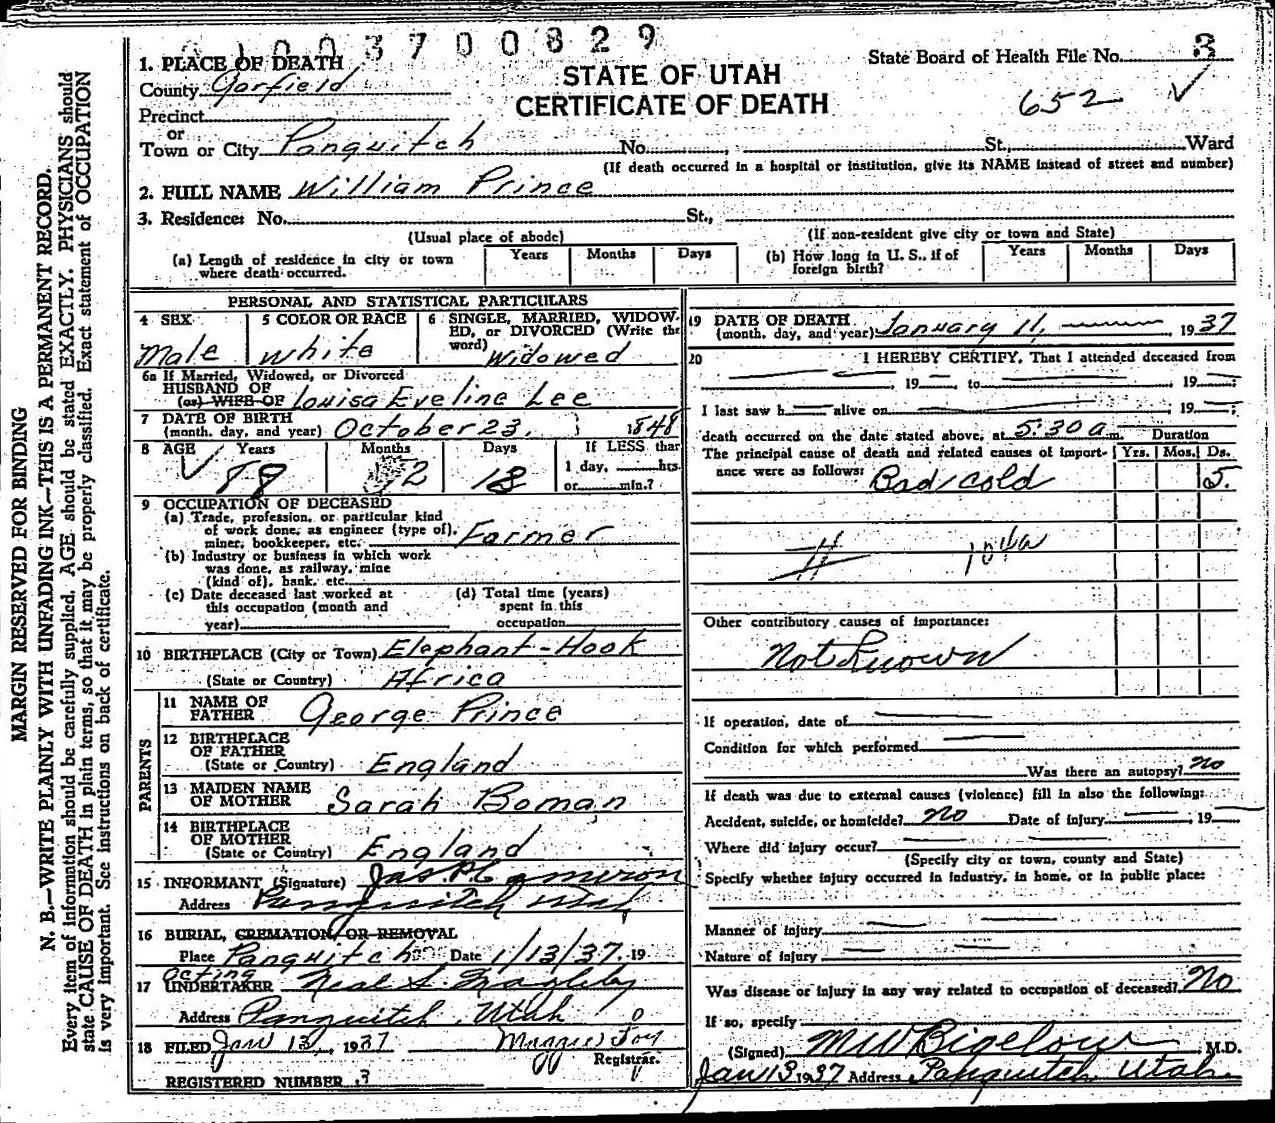 01003700829
State Board of Health File No. 3
STATE OF UTAH
CERTIFICATE OF DEATH
652 ✓
1. PLACE OF DEATH
County Garfield
Precinct
or
Town or City Panguitch No. , St., Ward
(If death occurred in a hospital or institution, give its NAME instead of street and number)
2. FULL NAME William Prince
3. Residence: No. St.,
(Usual place of abode) (If non-resident give city or town and State)
(a) Length of residence in city or town where death occurred. Years Months Days
(b) How long in U. S., if of foreign birth? Years Months Days
PERSONAL AND STATISTICAL PARTICULARS
4 SEX Male
5 COLOR OR RACE White
6 SINGLE, MARRIED, WIDOWED, or DIVORCED (Write the word) Widowed
6a If Married, Widowed, or Divorced
HUSBAND OF
(or) WIFE OF Louisa Eveline Lee
7 DATE OF BIRTH
(month, day, and year) October 23, 1848
8 AGE Years Months Days If LESS than
✓ 88 2 18 1 day, hrs.
or min.?
9 OCCUPATION OF DECEASED
(a) Trade, profession, or particular kind
of work done, as engineer (type of),
miner, bookkeeper, etc. Farmer
(b) Industry or business in which work
was done, as railway, mine
(kind of), bank, etc.
(c) Date deceased last worked at
this occupation (month and
year)
(d) Total time (years)
spent in this
occupation
10 BIRTHPLACE (City or Town) Elephant-Hook
(State or Country) Africa
PARENTS
11 NAME OF
FATHER George Prince
12 BIRTHPLACE
OF FATHER
(State or Country) England
13 MAIDEN NAME
OF MOTHER Sarah Boman
14 BIRTHPLACE
OF MOTHER
(State or Country) England
15 INFORMANT (Signature) Jas. P. Cameron
Address Panguitch Utah
16 BURIAL, CREMATION, OR REMOVAL
Place Panguitch Date 1/13/37. 19
Acting
17 UNDERTAKER Neal S.
Address Panguitch, Utah
18 FILED Jan 13, 1937 Maggie Foy
Registrar.
REGISTERED NUMBER 3
19 DATE OF DEATH
(month, day, and year) January 11, 1937
20 I HEREBY CERTIFY, That I attended deceased from
, 19 , to , 19 ;
I last saw h alive on , 19 ;
death occurred on the date stated above, at 5:30 a m. Duration
The principal cause of death and related causes of importance were as follows: Yrs. Mos. Ds.
Bad cold 5
Other contributory causes of importance:
Not Known
If operation, date of
Condition for which performed
Was there an autopsy? no
If death was due to external causes (violence) fill in also the following:
Accident, suicide, or homicide? no Date of injury , 19
Where did injury occur?
(Specify city or town, county and State)
Specify whether injury occurred in industry, in home, or in public place:
Manner of injury
Nature of injury
Was disease or injury in any way related to occupation of deceased? No
If so, specify
(Signed) M W Bigelow, M.D.
Jan 13 1937 Address Panguitch Utah
MARGIN RESERVED FOR BINDING
N. B.—WRITE PLAINLY WITH UNFADING INK—THIS IS A PERMANENT RECORD.
Every item of information should be carefully supplied. AGE should be stated EXACTLY. PHYSICIANS should
state CAUSE OF DEATH in plain terms, so that it may be properly classified. Exact statement of OCCUPATION
is very important. See instructions on back of certificate.